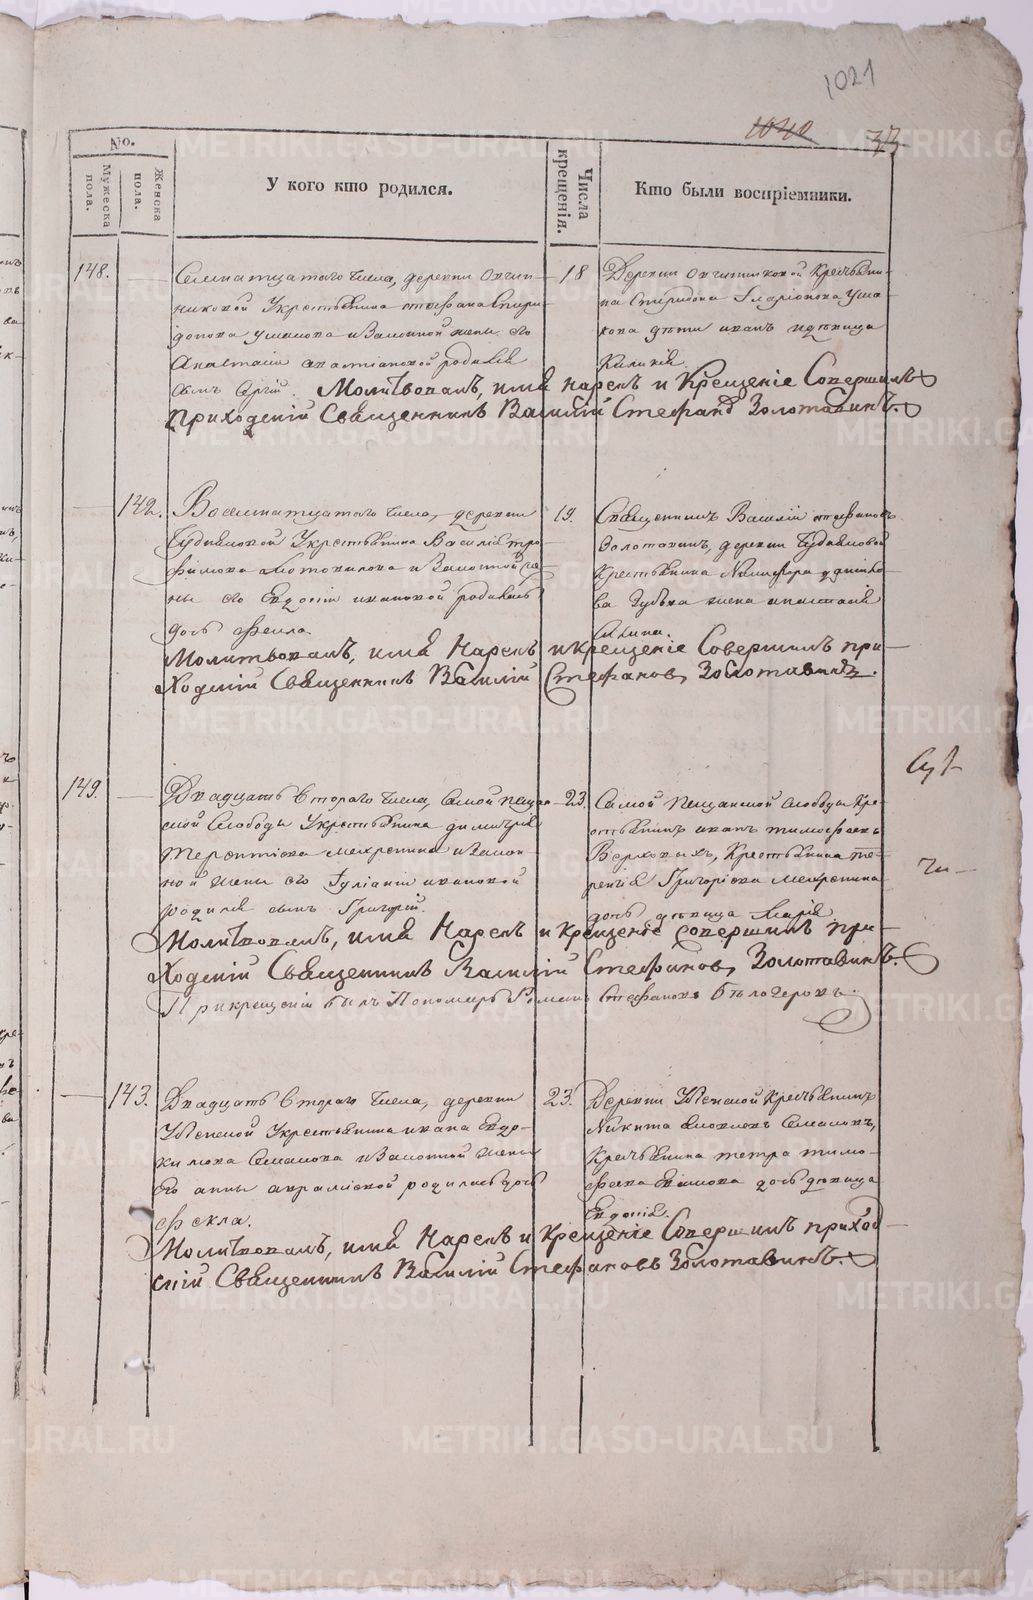 1021
1040 33
No.
Мужеска пола.
Женска пола.
У кого кто родился.
Числа крещенія.
Кто были воспріемники.
148.
Семнатцатого числа, деревни Овчин-
никовой Укрестьянина стефана Спири-
донова Ушакова изаконной жены его
Анастасіи родился
сынъ Сергій.
18
Деревни Овчинниковой Крестьяни-
на Спиридона Иларіонова Уша-
кова дѣти иванъ идѣвица
Киликія.
Молитвовалъ, имя нарекъ и Крещеніе Совершилъ
приходскій Священникъ Василій Стефановъ Золотавинъ.
142.
Восемнатцатого числа, деревни
Укрестьянина Василія тро-
фимова Мотовилова изаконной же-
ны его Евдокіи ивановой родилась
дочь Фекла.
19.
Священникъ Василій стефановъ
Золотавинъ, деревни
Крестьянина Никифора
ва Зубова жена анастасія
Молитвовалъ, имя Нарекъ икрещеніе Совершилъ при-
ходскій Священникъ Василій Стефановъ Золотавинъ.
149.
Двадцать втораго числа, Самой пещан-
ской Слободы Укрестьянина димитрія
Терентіева Мехренина изакон-
ной жены его Іуліаніи ивановой
родился сынъ Григорій.
23.
Самой пещанской Слободы Кре-
стьянинъ иванъ тимофеевъ
Верховыхъ, Крестьянина те-
рентія Григоріева Мехренина
дочь дѣвица Марія
Молитвовалъ, имя Нарекъ и крещеніе совершилъ при-
Ходскій Священникъ Василій Стефановъ Золотавинъ.
При крещеніи былъ Пономарь Романъ Стефановъ Бѣлозеровъ.
143.
Двадцать втораго числа, деревни
Укрестьянина ивана Евдо-
кимова Семакова изаконной жены
его анны авраміевой родилась дочь
Фекла.
23.
Деревни Крестьянинъ
Никита яковлевъ Семаковъ,
Крестьянина петра тимо-
феева дочь дѣвица
Евдокія.
Молитвовалъ, имя Нарекъ и крещеніе Совершилъ приход-
скій Священникъ Василій Стефановъ Золотавинъ.
METRIKI.GASO-URAL.RU